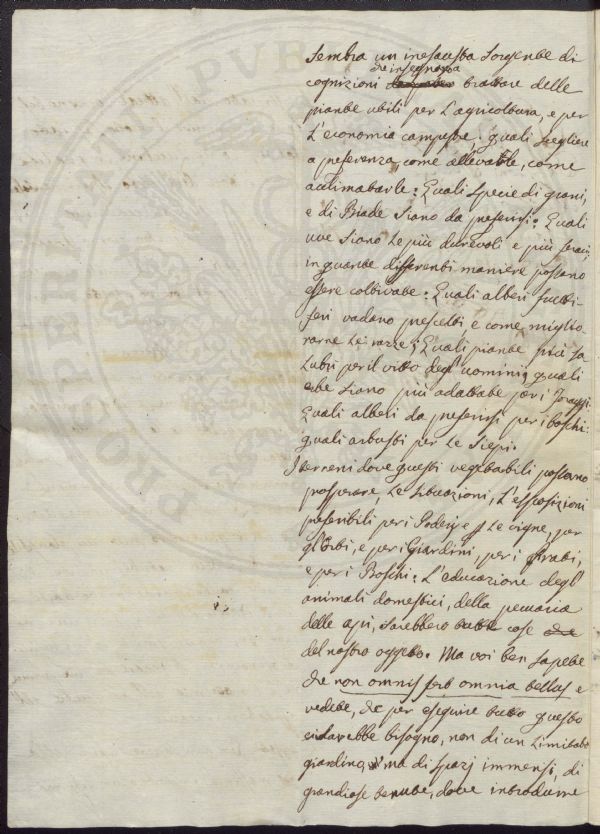 sembra un inesausta sorgente di
cognizioni che insegnassa trattare delle
piante utili per l'agricoltura, e per
l'economia campestre; quali scegliere
a preferenza, come allevarle, come
aclimatarle: Quali specie di grani,
e di Biade siano da preferirsi; Quali
uve siano le più durevoli e più feraci,
in quante differenti maniere possano
essere coltivate: Quali alberi frutti-
feri vadano prescelti e come miglio-
rarne le razze; Quali piante più sa
lubri per il vitto degl'uomini, quali
erbe siano più adattate per i Foraggi.
Quali alberi da preferirsi per i boschi:
quali arbusti per le siepi.
I terreni dove questi vegettabili possano
prosperare, le situazioni, l'esposizioni
preferibili per i Poderi, e le vigne, per
gl'Orti, e per i Giardini, per i Prati,
e per i Boschi: L'educazione degl'
animali domestici, della pecuaria
delle api, sarebbero tutte cose
del nostro oggetto. Ma voi ben sapete
che non omnis fert omnia tellus e
vedete, che per eseguire tutto questo
ci sarebbe bisogno, non di un limitato
giardino, ma di spazj immensi, di
grandiose tenute, dove introdurne
PROSPERITATI PVB